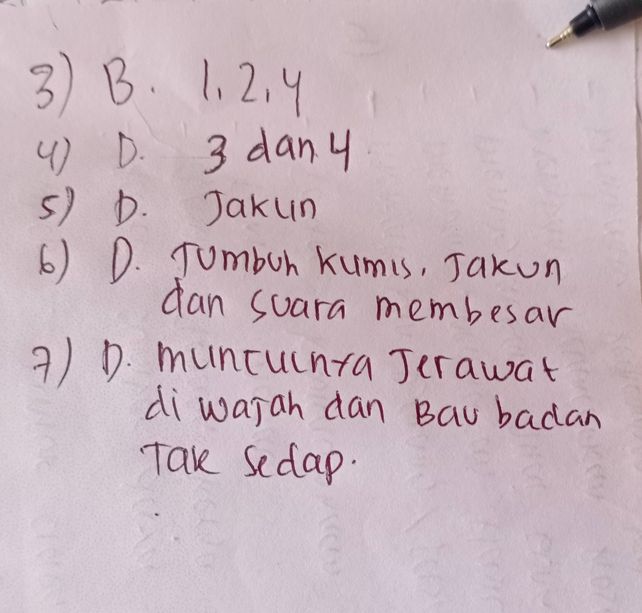 3) B. 1, 2, 4
4) D. 3 dan 4
5) D. Jakun
6) D. Tumbuh kumis, Jakun
dan suara membesar
7) D. munculnya Jerawat
di wajah dan Bau badan
Tak sedap.